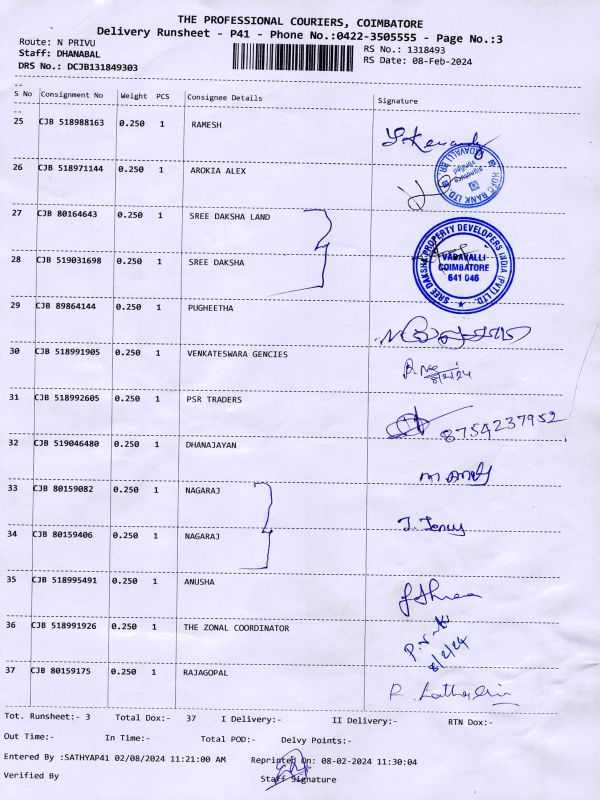 THE PROFESSIONAL COURIERS, COIMBATORE
Delivery Runsheet - P41 - Phone No.:0422-3505555 - Page No.:3
Route: N PRIVU
RS No.: 1318493
Staff: DHANABAL
RS Date: 08-Feb-2024
DRS No.: DCJB131849303
S No Consignment No Weight PCS Consignee Details Signature
25 CJB 518988163 0.250 1 RAMESH
26 CJB 518971144 0.250 1 AROKIA ALEX
HDFC BANK LTD VADAVALLI BR
27 CJB 80164643 0.250 1 SREE DAKSHA LAND
28 CJB 519031698 0.250 1 SREE DAKSHA
SREE DAKSHA PROPERTY DEVELOPERS INDIA (PVT) LTD
VADAVALLI
COIMBATORE
641 046
29 CJB 89864144 0.250 1 PUGHEETHA
30 CJB 518991905 0.250 1 VENKATESWARA GENCIES
8/2/24
31 CJB 518992605 0.250 1 PSR TRADERS
8754237952
32 CJB 519046480 0.250 1 DHANAJAYAN
33 CJB 80159082 0.250 1 NAGARAJ
34 CJB 80159406 0.250 1 NAGARAJ
35 CJB 518995491 0.250 1 ANUSHA
36 CJB 518991926 0.250 1 THE ZONAL COORDINATOR
8/2/24
37 CJB 80159175 0.250 1 RAJAGOPAL
Tot. Runsheet:- 3 Total Dox:- 37 I Delivery:- II Delivery:- RTN Dox:-
Out Time:- In Time:- Total POD:- Delvy Points:-
Entered By :SATHYAP41 02/08/2024 11:21:00 AM Reprinted On: 08-02-2024 11:30:04
Verified By Staff Signature